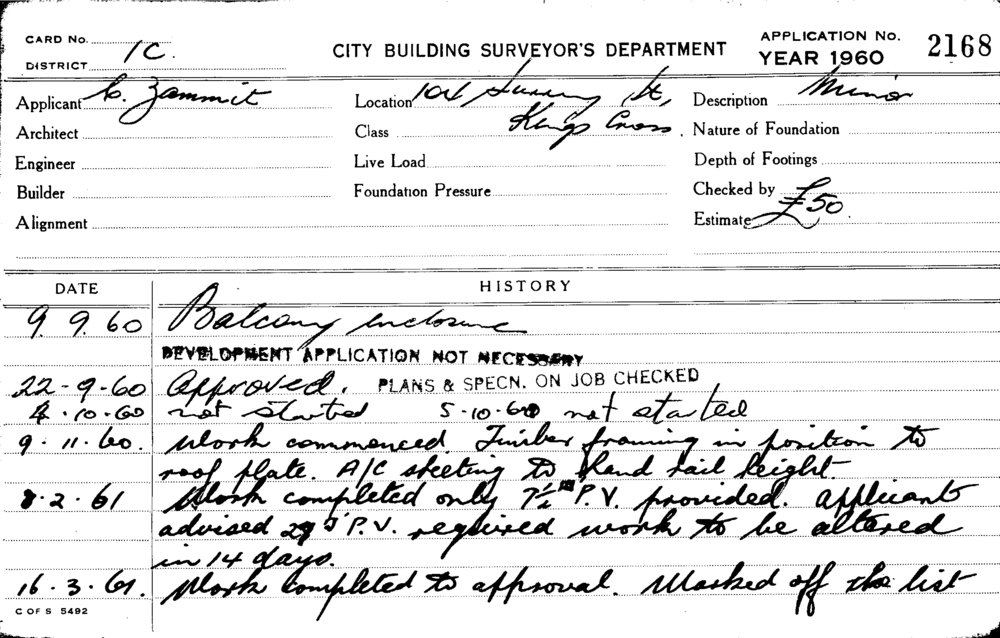 CARD No.
DISTRICT 1C.
CITY BUILDING SURVEYOR'S DEPARTMENT
APPLICATION No. 2168
YEAR 1960
Applicant C. Zammit
Location 104 Surrey St,
Kings Cross.
Description Minor
Architect
Class
Nature of Foundation
Engineer
Live Load
Depth of Footings
Builder
Foundation Pressure
Checked by
Alignment
Estimate £50
DATE
HISTORY
9. 9. 60 Balcony enclosure
DEVELOPMENT APPLICATION NOT NECESSARY
22-9-60 Approved. PLANS & SPECN. ON JOB CHECKED
4.10.60 not started 5-10-60 not started
9.11.60. Work commenced. Timber framing in position to
roof plate. A/C sheeting to hand rail height.
8.2.61 Work completed only 7½ P.V. provided. Applicant
advised P.V. required work to be altered
in 14 days.
16.3.61. Work completed to approval. Marked off list
C OF S 5492